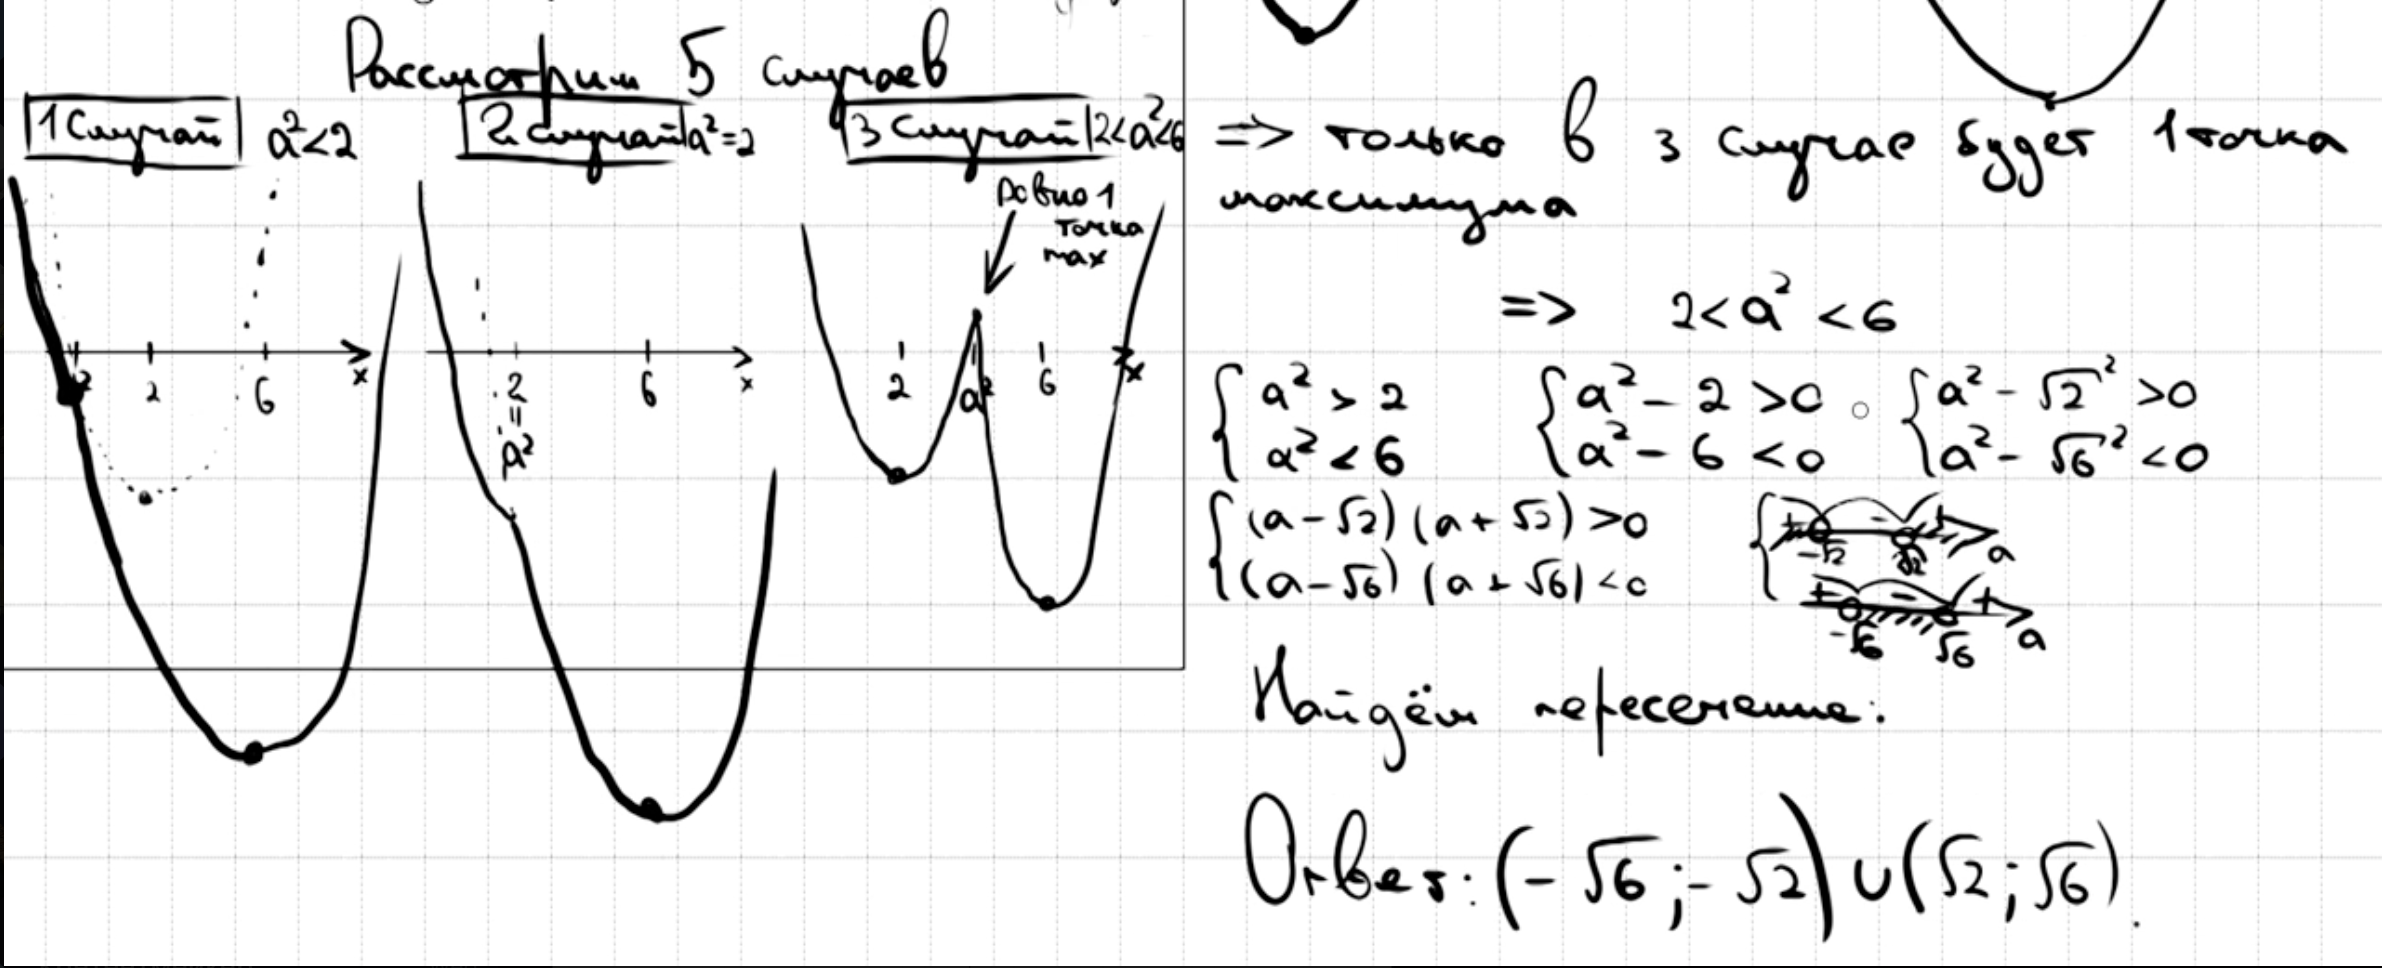 Рассмотрим 5 случаев
1 Случай a²<2
2 случай a²=2
3 Случай 2<a²<6
Ровно 1
точка
max
2 6 x
2 6 x
=
a²
2 a² 6 x
=> только в 3 случае будет 1 точка
максимума
=> 2<a²<6
{ a² > 2 { a² - 2 >0 { a² - √2² >0
a² < 6 a² - 6 <0 a² - √6² <0
{ (a-√2) (a+√2) >0
(a-√6) (a+√6) <0
+ - +
-√2 √2 a
+ - +
-√6 √6 a
Найдём пересечение:
Ответ: (-√6;-√2)∪(√2;√6).